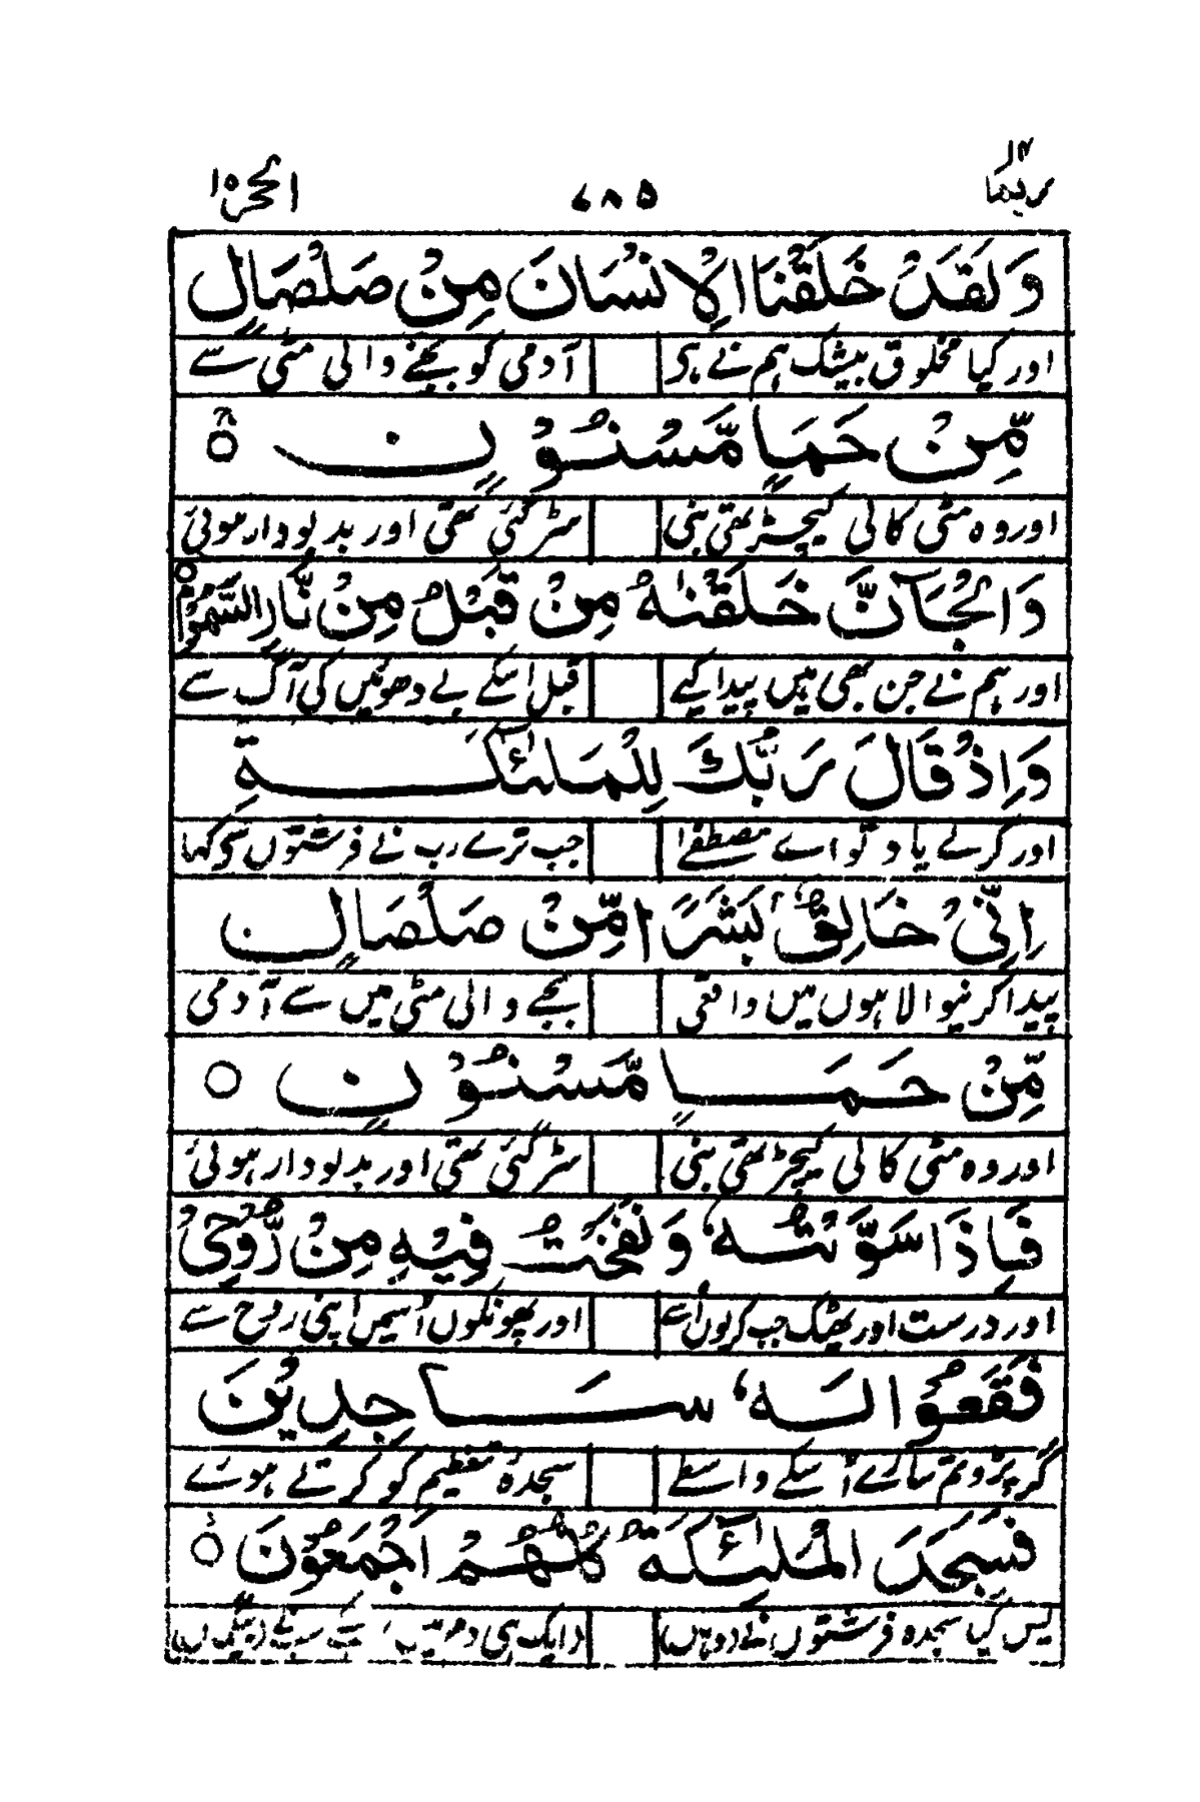 ربما ١٤ ٦٨٥ الحجر ١٥
وَلَقَدْ خَلَقْنَا الْاِنْسَانَ مِنْ صَلْصَالٍ
اور کیا مخلوق بیشک ہم نے ہر آدمی کو بجنے والی مٹی سے
مِّنْ حَمَاٍ مَّسْنُوْنٍ
اور وہ مٹی کالی کیچڑ تھی بنی سڑ گئی تھی اور بدبودار ہوئی
وَالْجَآنَّ خَلَقْنٰهُ مِنْ قَبْلُ مِنْ نَّارِ السَّمُوْمِ
اور ہم نے جن بھی ہیں پیدا کیے قبل اسکے بے دھوئیں کی آگ سے
وَاِذْ قَالَ رَبُّكَ لِلْمَلٰٓئِكَةِ
اور کرلے یاد تو اے مصطفےٰ جب ترے رب نے فرشتوں سے کہا
اِنِّیْ خَالِقٌۢ بَشَرًا مِّنْ صَلْصَالٍ
پیدا کرنیوالا ہوں میں واقعی بجنے والی مٹی میں سے آدمی
مِّنْ حَمَاٍ مَّسْنُوْنٍ
اور وہ مٹی کالی کیچڑ تھی بنی سڑ گئی تھی اور بدبودار ہوئی
فَاِذَا سَوَّيْتُهٗ وَنَفَخْتُ فِيْهِ مِنْ رُّوْحِیْ
اور درست اور ٹھیک جب کرلوں اُسے اور پھونکوں اُسمیں اپنی روح سے
فَقَعُوْا لَهٗ سَاجِدِيْنَ
گر پڑو تم سارے اُسکے واسطے سجدہ تعظیم کو کرتے ہوئے
فَسَجَدَ الْمَلٰٓئِكَةُ كُلُّهُمْ اَجْمَعُوْنَ
پس کیا سجدہ فرشتوں نے (وہاں) (ایک ہی دم میں سب کے سب نے